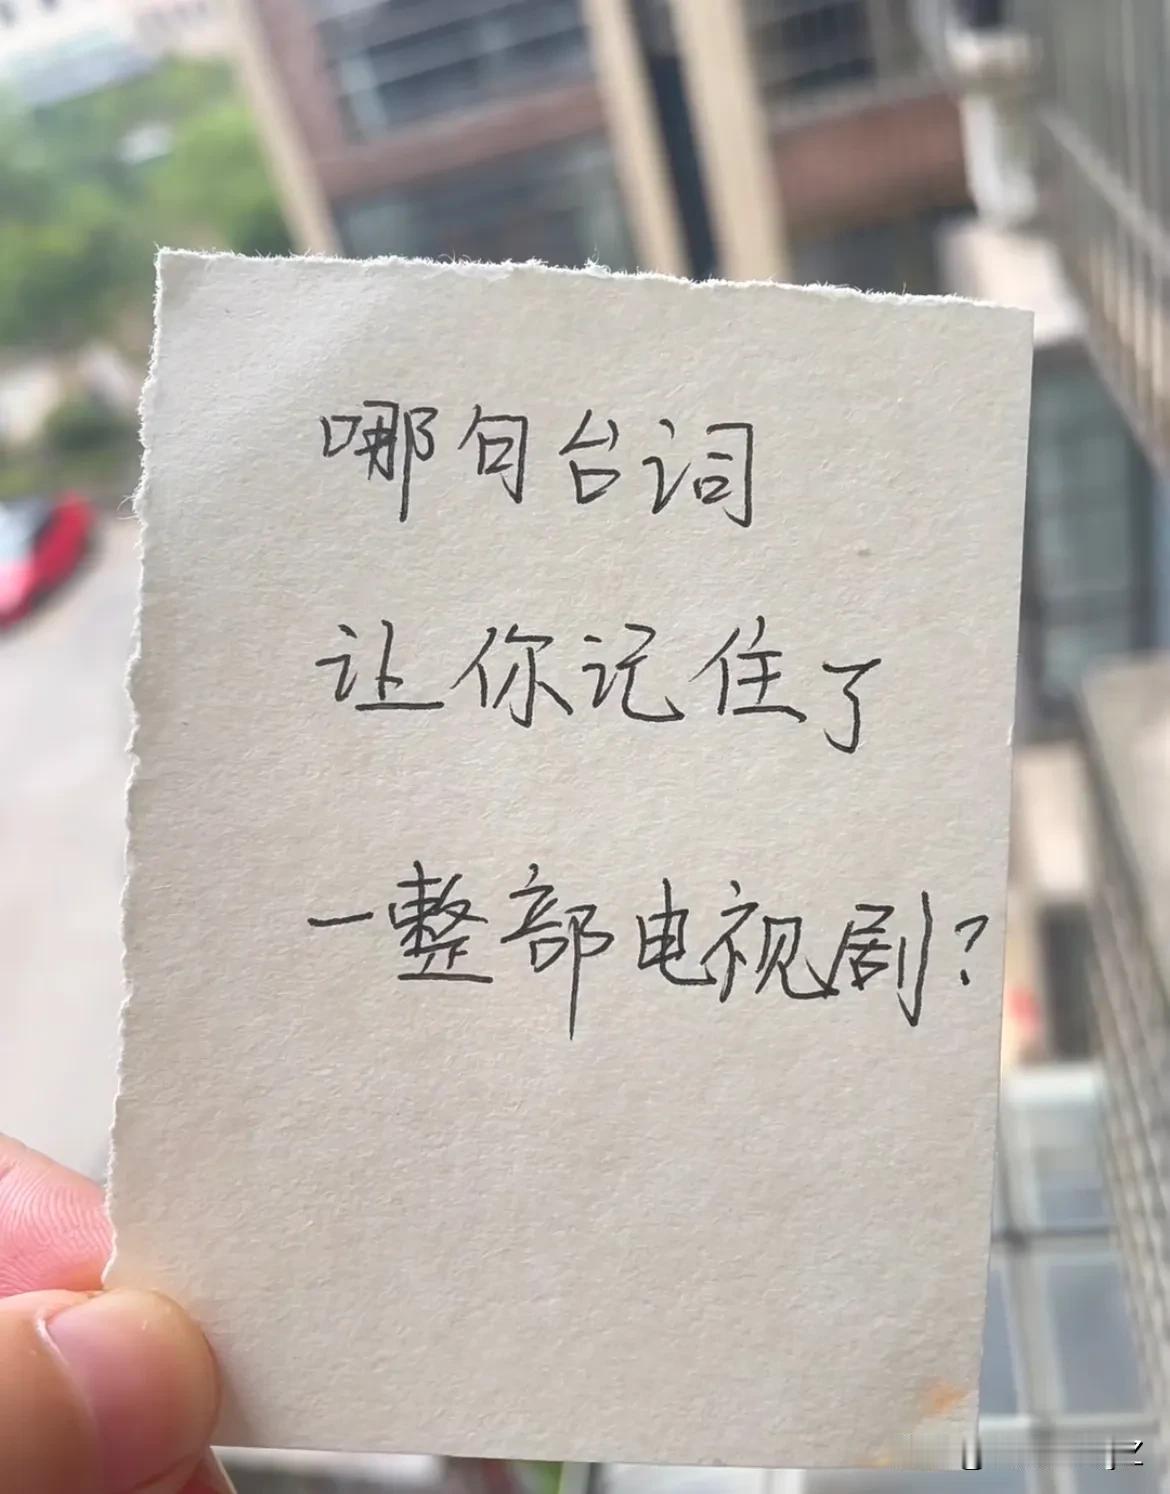 哪句台词
让你记住了
一整部电视剧?